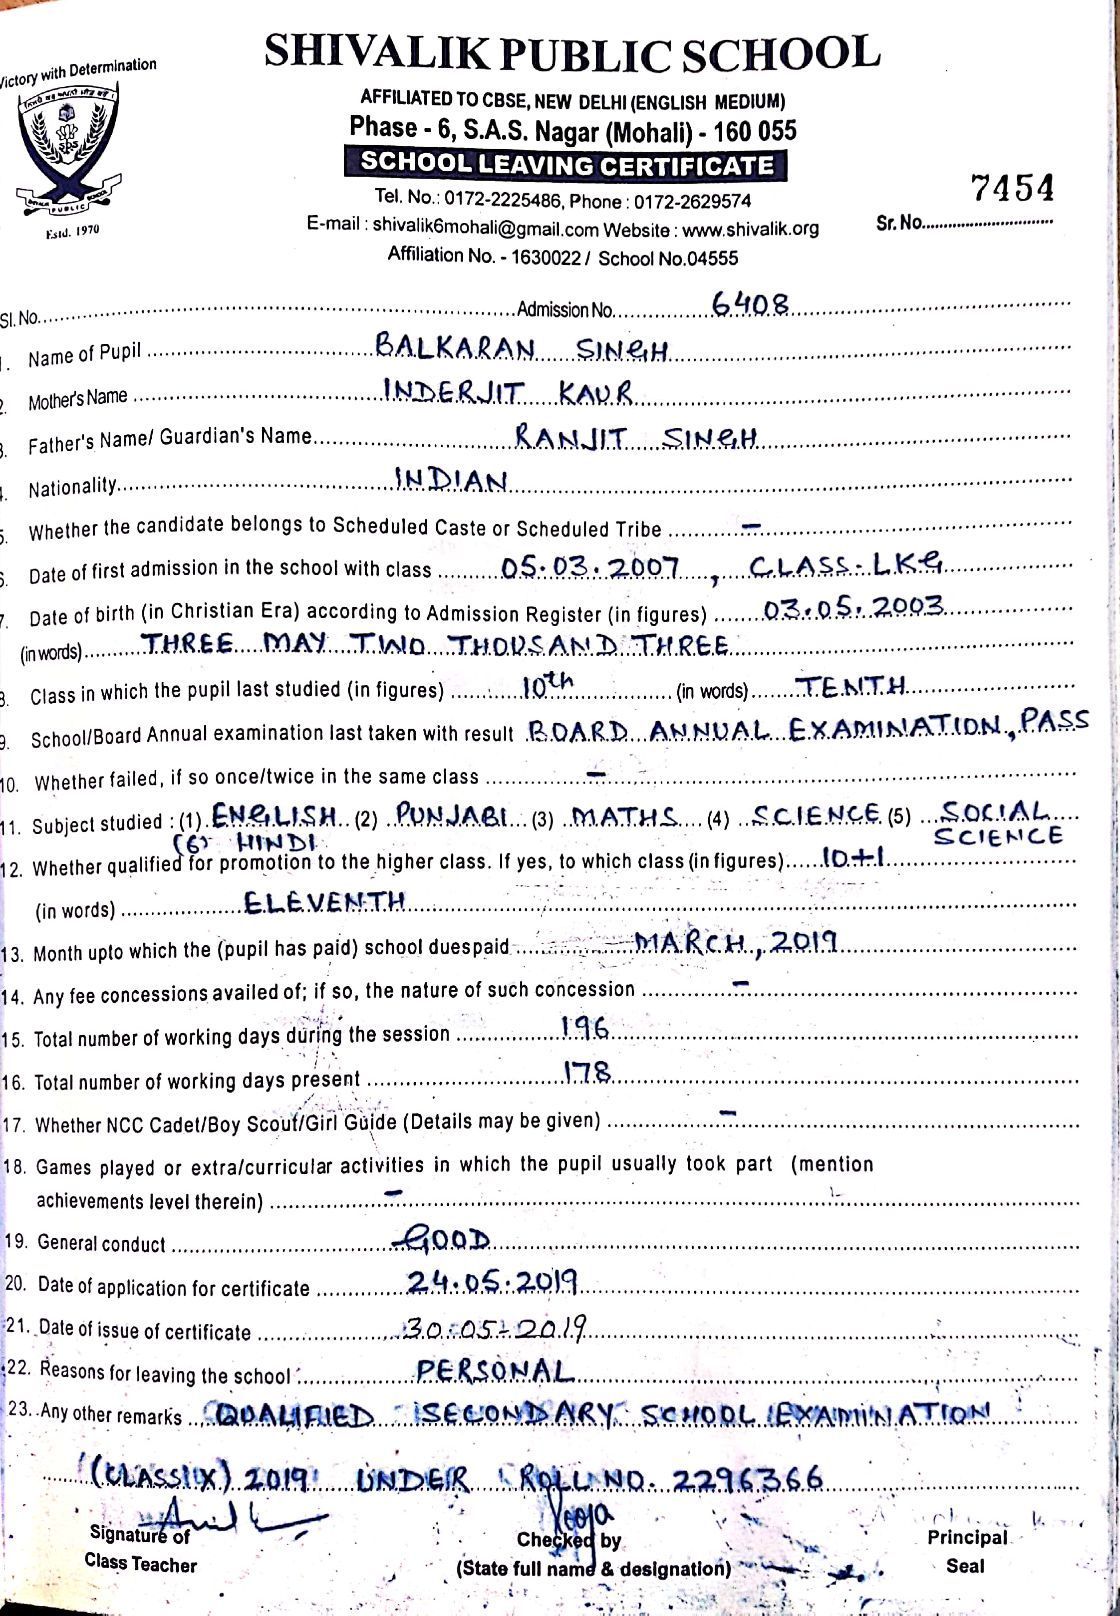 Victory with Determination
SPS
SHIVALIK PUBLIC SCHOOL
Estd. 1970
SHIVALIK PUBLIC SCHOOL
AFFILIATED TO CBSE, NEW DELHI (ENGLISH MEDIUM)
Phase - 6, S.A.S. Nagar (Mohali) - 160 055
SCHOOL LEAVING CERTIFICATE
Tel. No.: 0172-2225486, Phone : 0172-2629574
E-mail : shivalik6mohali@gmail.com Website : www.shivalik.org
Affiliation No. - 1630022 / School No.04555
7454
Sr. No.
Sl. No. Admission No. 6408
1. Name of Pupil BALKARAN SINGH
2. Mother's Name INDERJIT KAUR
3. Father's Name/ Guardian's Name RANJIT SINGH
4. Nationality INDIAN
5. Whether the candidate belongs to Scheduled Caste or Scheduled Tribe –
6. Date of first admission in the school with class 05.03.2007, CLASS-LKG
7. Date of birth (in Christian Era) according to Admission Register (in figures) 03.05.2003
(in words) THREE MAY TWO THOUSAND THREE
8. Class in which the pupil last studied (in figures) 10th (in words) TENTH
9. School/Board Annual examination last taken with result BOARD ANNUAL EXAMINATION, PASS
10. Whether failed, if so once/twice in the same class –
11. Subject studied : (1) ENGLISH (2) PUNJABI (3) MATHS (4) SCIENCE (5) SOCIAL SCIENCE
(6) HINDI
12. Whether qualified for promotion to the higher class. If yes, to which class (in figures) 10+1
(in words) ELEVENTH
13. Month upto which the (pupil has paid) school duespaid MARCH, 2019
14. Any fee concessions availed of; if so, the nature of such concession –
15. Total number of working days during the session 196
16. Total number of working days present 178
17. Whether NCC Cadet/Boy Scout/Girl Guide (Details may be given) –
18. Games played or extra/curricular activities in which the pupil usually took part (mention
achievements level therein) –
19. General conduct GOOD
20. Date of application for certificate 24.05.2019
21. Date of issue of certificate 30-05-2019
22. Reasons for leaving the school : PERSONAL
23. Any other remarks QUALIFIED SECONDARY SCHOOL EXAMINATION
(CLASS X) 2019 UNDER ROLL NO. 2296366
Pooja
Signature of Checked by Principal
Class Teacher (State full name & designation) Seal